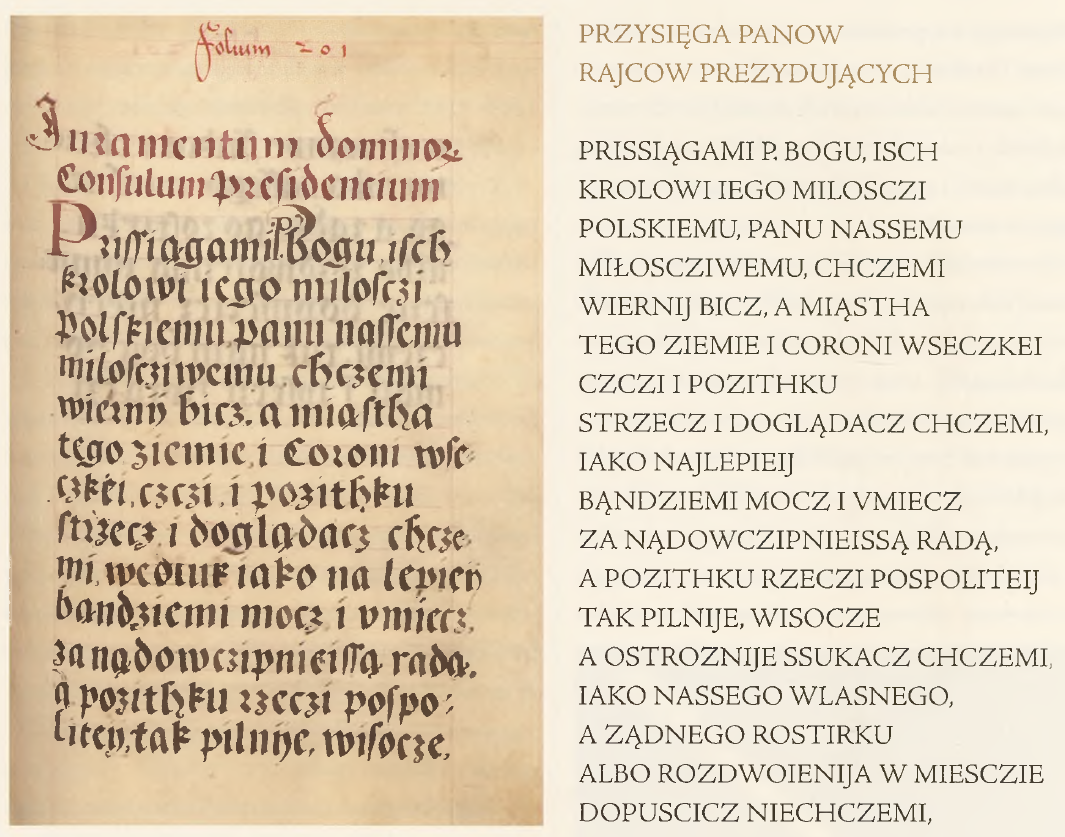 Folium 201
Juramentum dominoꝝ
Consulum presidencium
Prissiągami P. Bogu, isch
krolowi iego miloſczi
polſkiemu panu naſſemu
miloſcziwemu, chczemi
wiernij bicz, a miaſtha
tego ziemie, i Coroni wſe-
czkei, czczi, i pozithku
ſtrzecz, i doglądacz chcze-
mi, wedluk iako na lepieij
bandziemi mocz i vmiecz,
za nądowczipnieiſſą radą,
a pozithku rzeczi poſpo-
liteij, tak pilnije, wiſocze,
PRZYSIĘGA PANOW
RAJCOW PREZYDUJĄCYCH
PRISSIĄGAMI P. BOGU, ISCH
KROLOWI IEGO MILOSCZI
POLSKIEMU, PANU NASSEMU
MIŁOSCZIWEMU, CHCZEMI
WIERNIJ BICZ, A MIĄSTHA
TEGO ZIEMIE I CORONI WSECZKEI
CZCZI I POZITHKU
STRZECZ I DOGLĄDACZ CHCZEMI,
IAKO NAJLEPIEIJ
BĄNDZIEMI MOCZ I VMIECZ
ZA NĄDOWCZIPNIEISSĄ RADĄ,
A POZITHKU RZECZI POSPOLITEIJ
TAK PILNIJE, WISOCZE
A OSTROZNIJE SSUKACZ CHCZEMI,
IAKO NASSEGO WLASNEGO,
A ZĄDNEGO ROSTIRKU
ALBO ROZDWOIENIJA W MIESCZIE
DOPUSCICZ NIECHCZEMI,